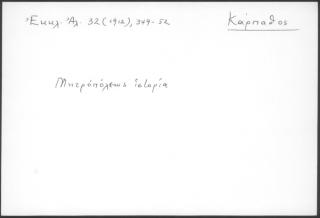 Ἐκκλ. Ἀλ. 32 (1912), 349-52
Κάρπαθος
Μητροπόλεως ἱστορία